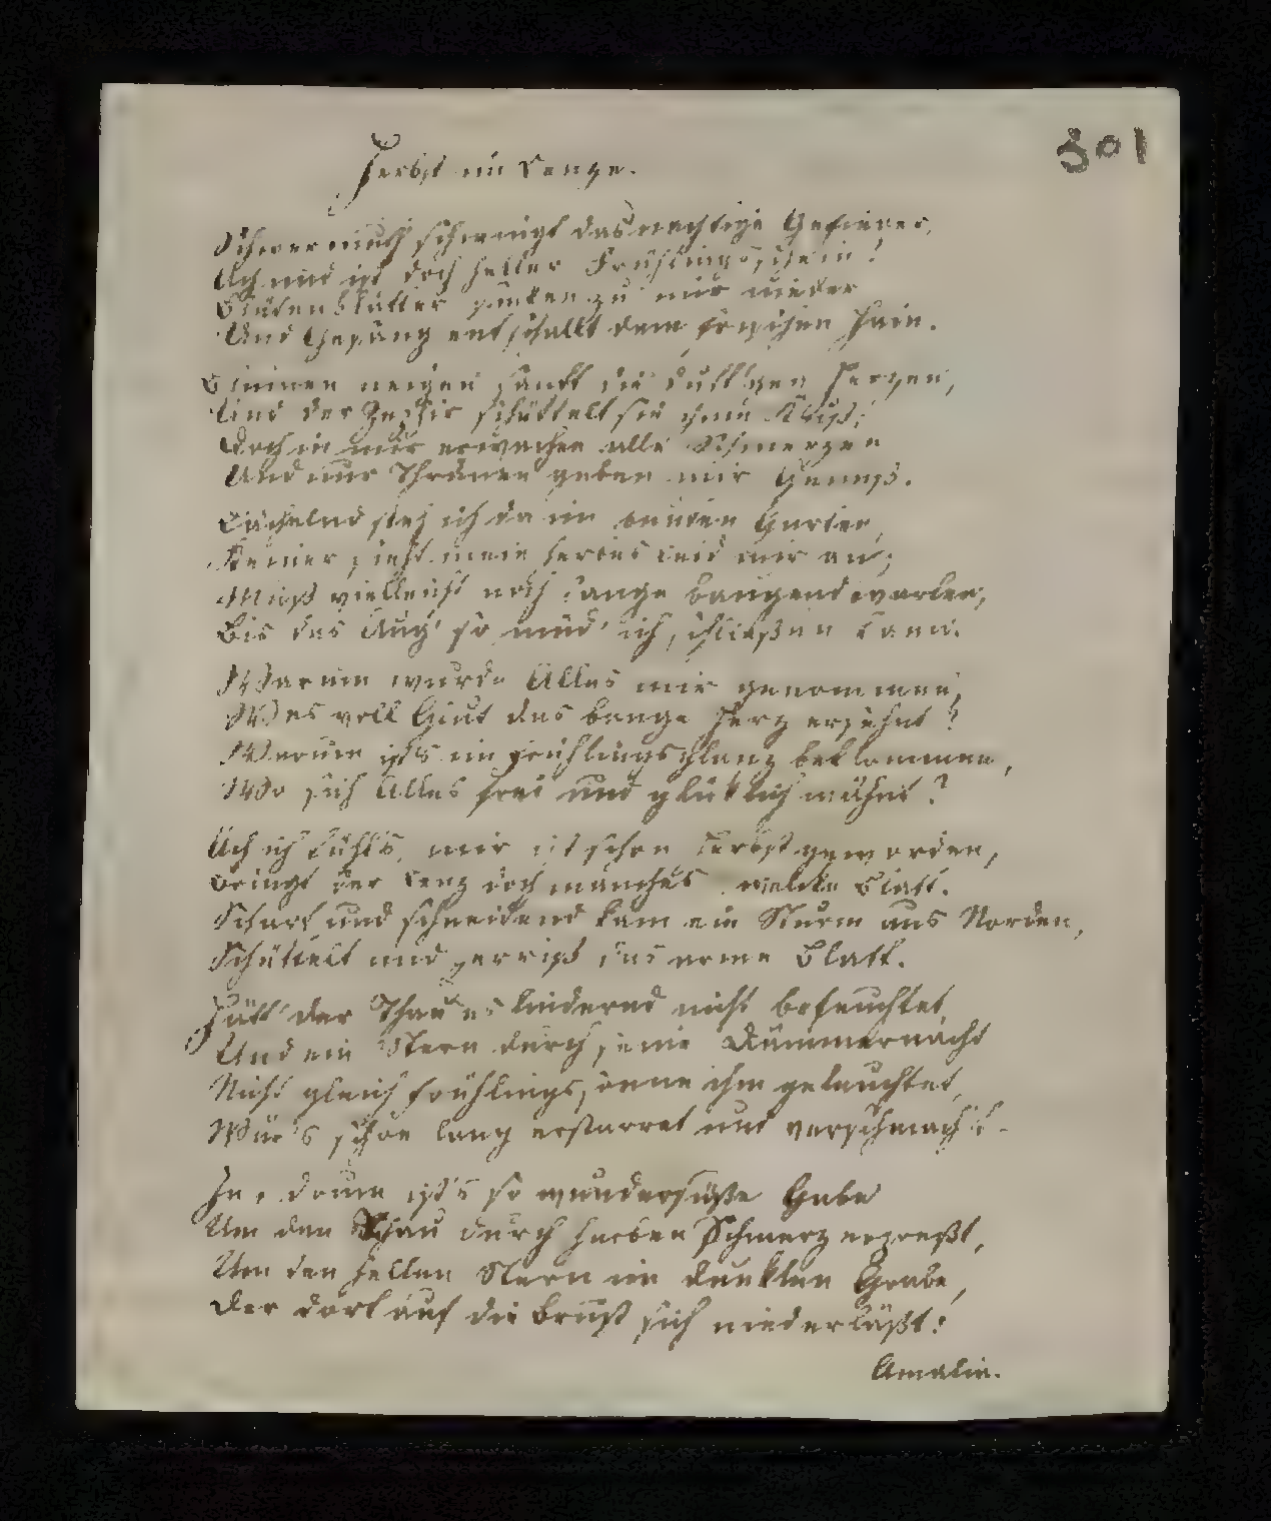 Herbst im Lenze.
301
Schwermuth schwingt das mächtige Gefieder,
Ach und ist doch heller Frühlingsschein!
Blütenblätter sinken zu mir nieder
Und Gesang entschallt dem frischen Hain.
Blumen neigen sanft die duft'gen Herzen,
Und der Zephir schüttelt sie zum Kuß;
Doch in mir erwachen alle Schmerzen
Und nur Thränen geben mir Genuß.
Lächelnd steh ich da im bunten Garten,
Keiner sieht mein herbes Leid mir an;
Muß vielleicht noch lange bangend warten,
Bis das Aug' so müd' ich schließen kann.
Warum wurde Alles mir genommen,
Was voll Glut das bange Herz ersehnt?
Warum ist's im Frühlingsglanz beklommen,
Wo sich Alles frei und glüklich wähnt?
Ach ich fühl's, mir ist schon Herbst geworden,
Bringt der Lenz doch manches welke Blatt.
Scharf und schneidend kam ein Sturm aus Norden,
Schüttelt und zerriß das arme Blatt.
Hätt' der Thau es lindernd nicht befeuchtet,
Und ein Stern durch seine Dämmernacht
Nicht gleich Frühlingssonne ihm geleuchtet,
Wär's schon lang erstarret und verschmacht't.
Ja, drum ist's so wundersüße Gabe
Um den Thau durch herben Schmerz erpreßt,
Um den hellen Stern im dunklen Grabe,
Der dort auf die Brust sich niederläßt!
Amalie.